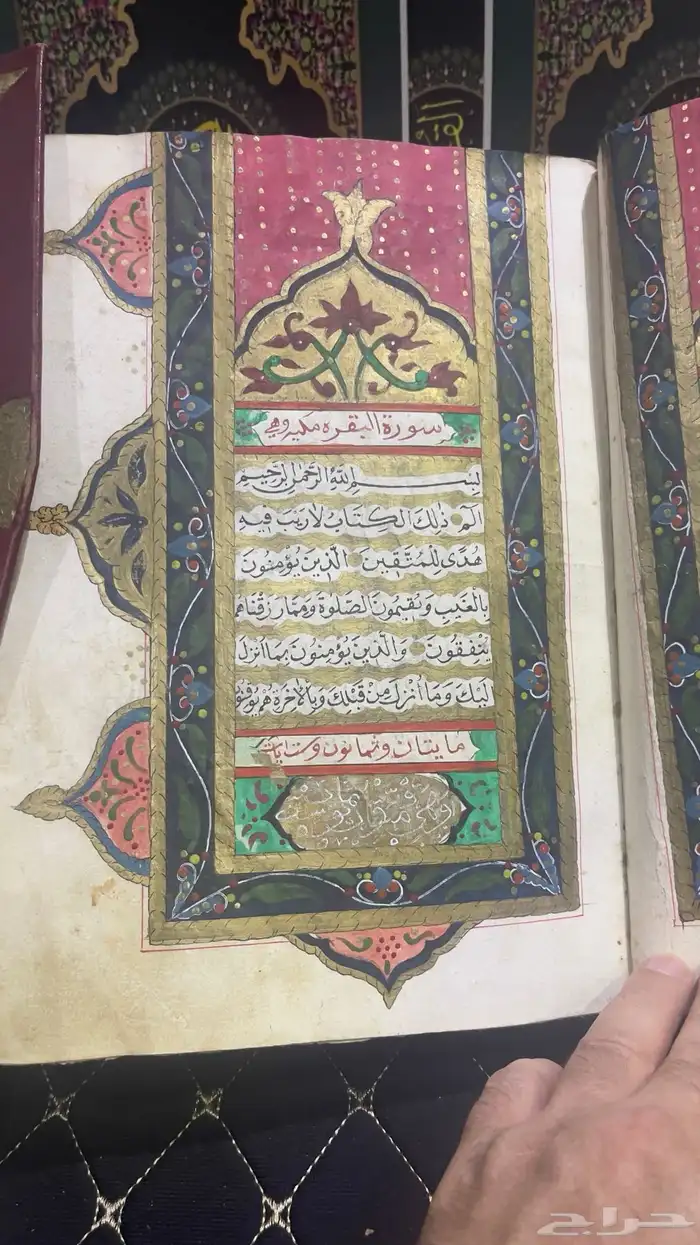 سورة البقره مكيه وهي
بِسْمِ اللَّهِ الرَّحْمَٰنِ الرَّحِيمِ
الٓمٓ ذَٰلِكَ الْكِتَابُ لَا رَيْبَ فِيهِ
هُدًى لِلْمُتَّقِينَ الَّذِينَ يُؤْمِنُونَ
بِالْغَيْبِ وَيُقِيمُونَ الصَّلٰوةَ وَمِمَّا رَزَقْنَاهُمْ
يُنْفِقُونَ وَالَّذِينَ يُؤْمِنُونَ بِمَا أُنْزِلَ
إِلَيْكَ وَمَا أُنْزِلَ مِنْ قَبْلِكَ وَبِالْآخِرَةِ هُمْ يُوقِنُونَ
مايتان وثمانون وست ايات
حراج